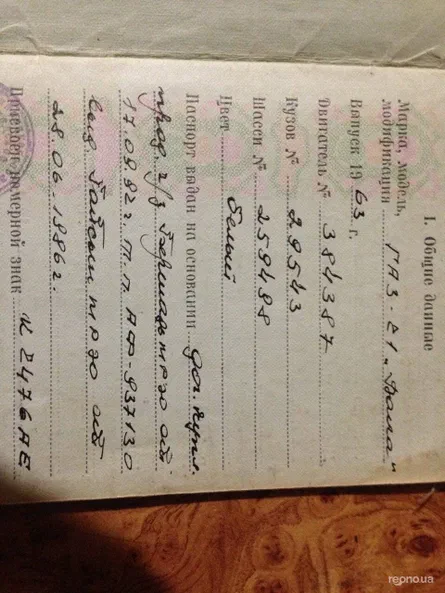 I. Общие данные
Марка, модель,
модификация ГАЗ-21 „Волга"
Выпуск 1963 г.
Двигатель № 384387
Кузов № 29543
Шасси № 258488
Цвет белый
Паспорт выдан на основании дог. купл.
прод. г/з МРЭО
17.09.82г. Т.П. АФ-937130
выд. МРЭО
28.06.1986г.
Присвоен номерной знак И 2476 АЕ
repno.ua